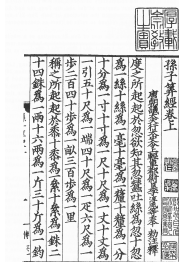 孫子筭經卷上
唐朝議大夫行太史令上輕車都尉臣李淳風等奉 敕注釋
度之所起起於忽欲知其忽蠶吐絲為忽十忽
為一絲十絲為一毫十毫為一氂十氂為一分
十分為一寸十寸為一尺十尺為一丈十丈為
一引五十尺為一端四十尺為一疋六尺為一
步二百四十步為一畝三百步為一里
稱之所起起於黍十黍為一絫十絫為一銖二
十四銖為一兩十六兩為一斤三十斤為一鈞